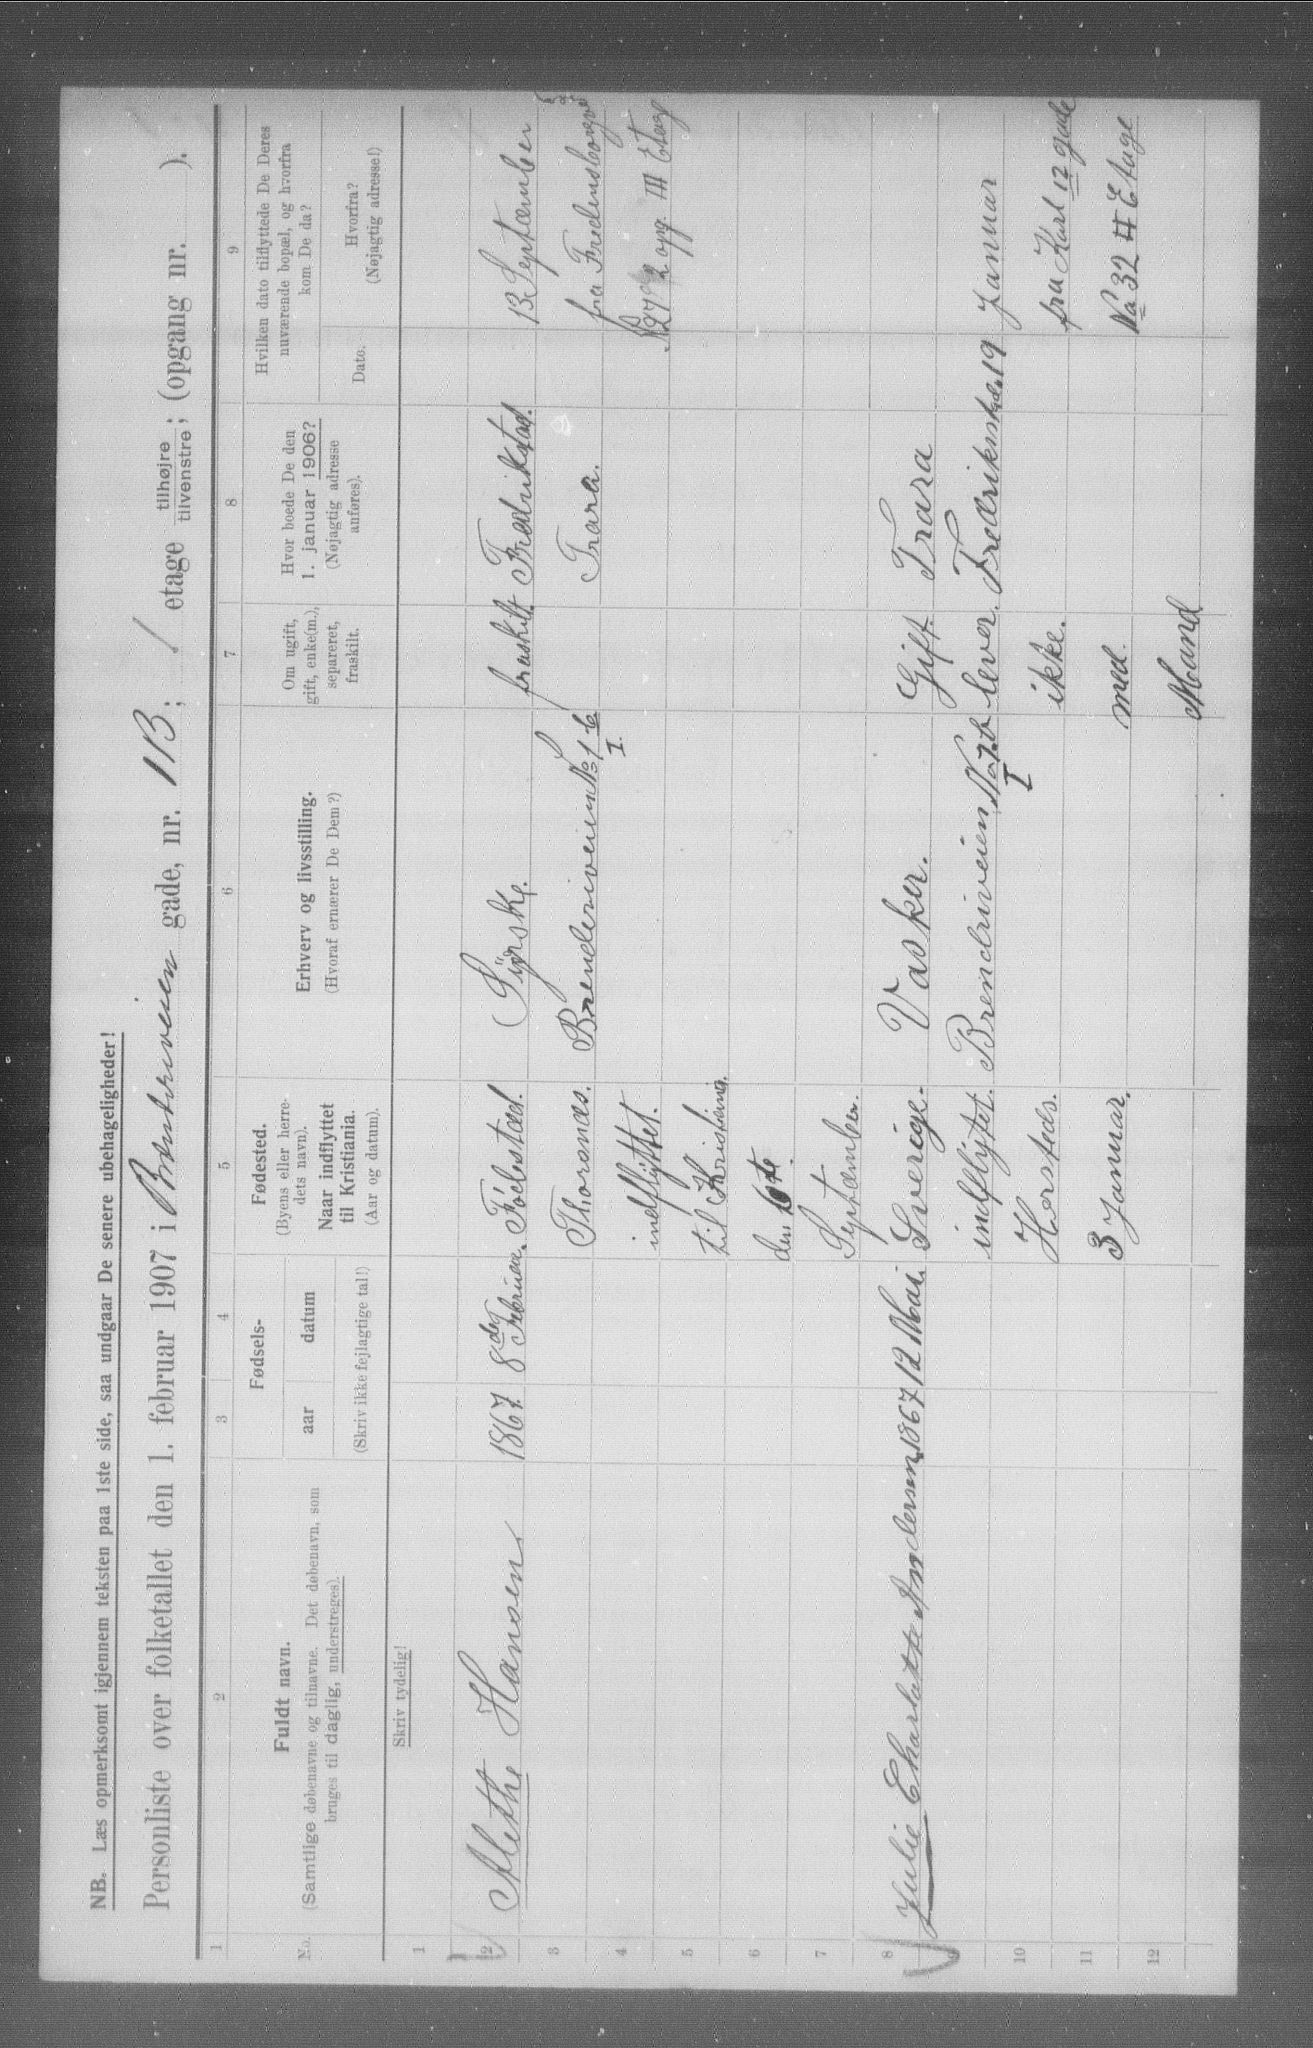 NB. Læs opmerksomt igjennem teksten paa 1ste side, saa undgaar De senere ubehageligheder!
Personliste over folketallet den 1. februar 1907 i gade, nr. 1B; / etage tilhøjre tilvenstre; (opgang nr. ).
1 2 3 4 5 6 7 8 9
No.
Fuldt navn.
(Samtlige døbenavne og tilnavne. Det døbenavn, som
bruges til daglig, understreges).
Fødsels-
aar datum
(Skriv ikke fejlagtige tal!)
Fødested.
(Byens eller herre-
dets navn).
Naar indflyttet
til Kristiania.
(Aar og datum).
Erhverv og livsstilling.
(Hvoraf ernærer De Dem?)
Om ugift,
gift, enke(m.),
separeret,
fraskilt.
Hvor boede De den
1. januar 1906?
(Nøjagtig adresse
anføres).
Hvilken dato tilflyttede De Deres
nuværende bopæl, og hvorfra
kom De da?
Dato.
Hvorfra?
(Nøjagtig adresse!)
Skriv tydelig!
1
2 Alethe Hansen 1867 8de Februar. fraskilt. Fredrikstad. 13 September
3 Thorsnæs. No 1 b Trara. fra
I
4 indflyttet. No 27 2 opg. III Etag
5 til Kristiania.
6 den
7 September.
8 Julie Charlotte Andersen 1867 12 Mai. Sverige. Vasker. Gift. Trara
9 indflytet. Brendriveien No 1 b lever. 19 Januar
I
10 Hersteds. ikke. fra Karl 12 gade
11 3 Januar. med. No 32 II Etage
12 Mand